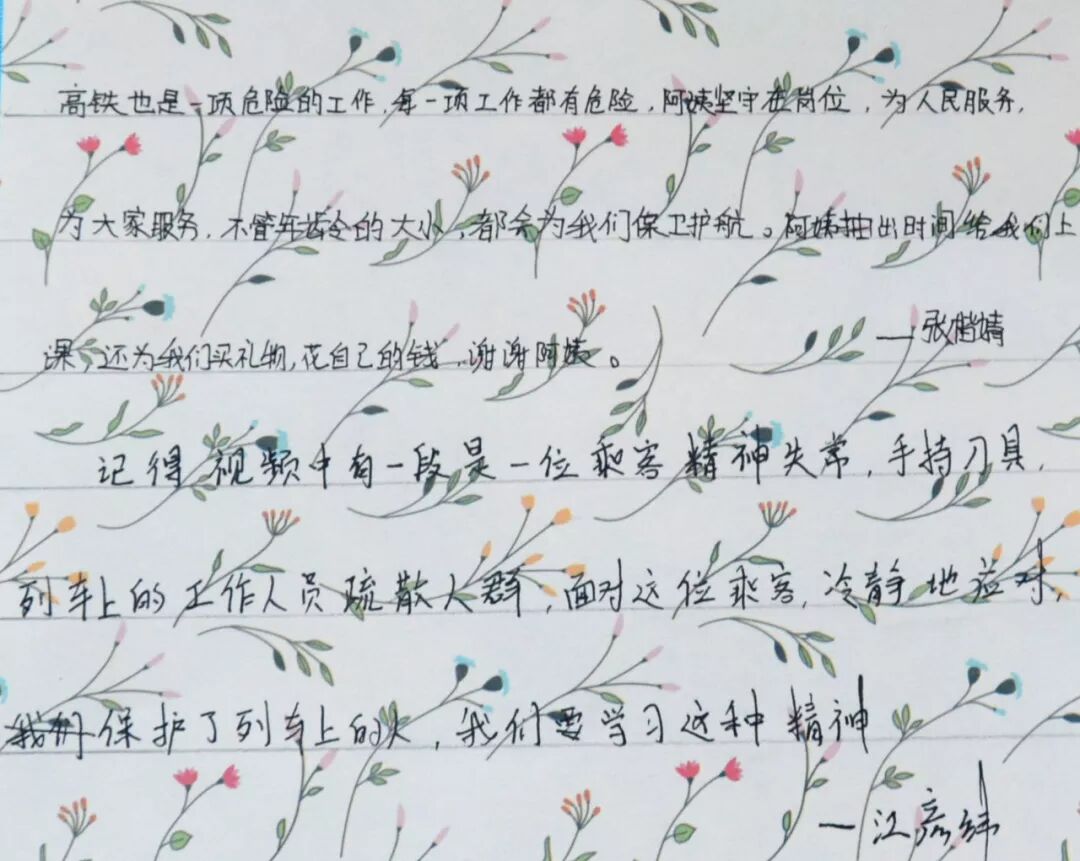 高铁也是一项危险的工作,每一项工作都有危险,阿姨坚守在岗位,为人民服务,
为大家服务,不管年龄的大小,都会为我们保卫护航。阿姨抽出时间给我们上
课,还为我们买礼物,花自己的钱,谢谢阿姨。
—张楷婧
记得视频中有一段是一位乘客精神失常,手持刀具,
列车上的工作人员疏散人群,面对这位乘客,冷静地应对,
保护了列车上的人,我们要学习这种精神
—江彦纬